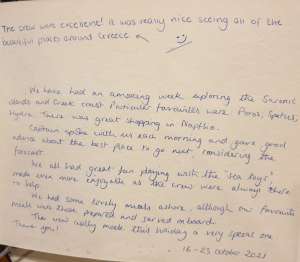 The crew were excellent! It was really nice seeing all of the
beautiful places around Greece
We have had an amazing week exploring the Saronic
islands and Greek coast. Particular favourites were Poros, Spetses,
Hydra. There was great shopping in Napflio.
Captain spiros with us each morning and gave good
advice about the best place to go next, considering the
forecast.
We all had great fun playing with the "sea toys"
made even more enjoyable as the crew were always there
to help.
We had some lovely meals ashore, although our favourite
meals was those prepared and served onboard.
The crew really made this holiday a very special one.
Thank you!
16 - 23 October 2021